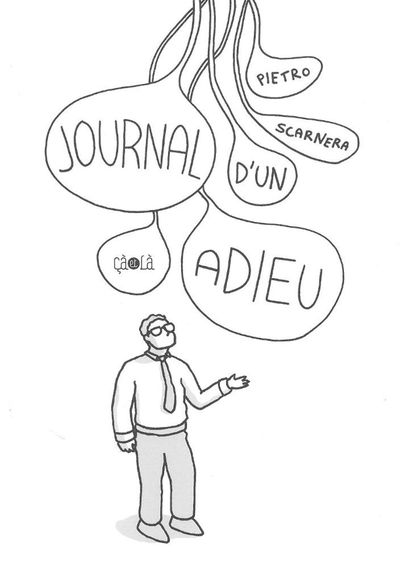 PIETRO
SCARNERA
JOURNAL
D'UN
ADIEU
çà et là